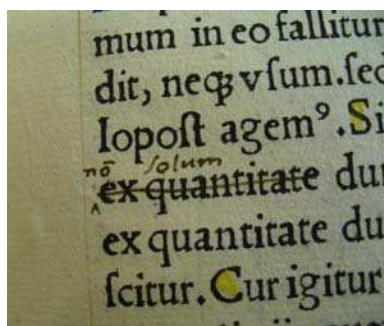 mum in eo fallitur
dit, neqꝫ vſum.ſed
lopoſt agemꝰ.Si
nō ſolum
ex quantitate du
ex quantitate du
ſcitur.Cur igitur